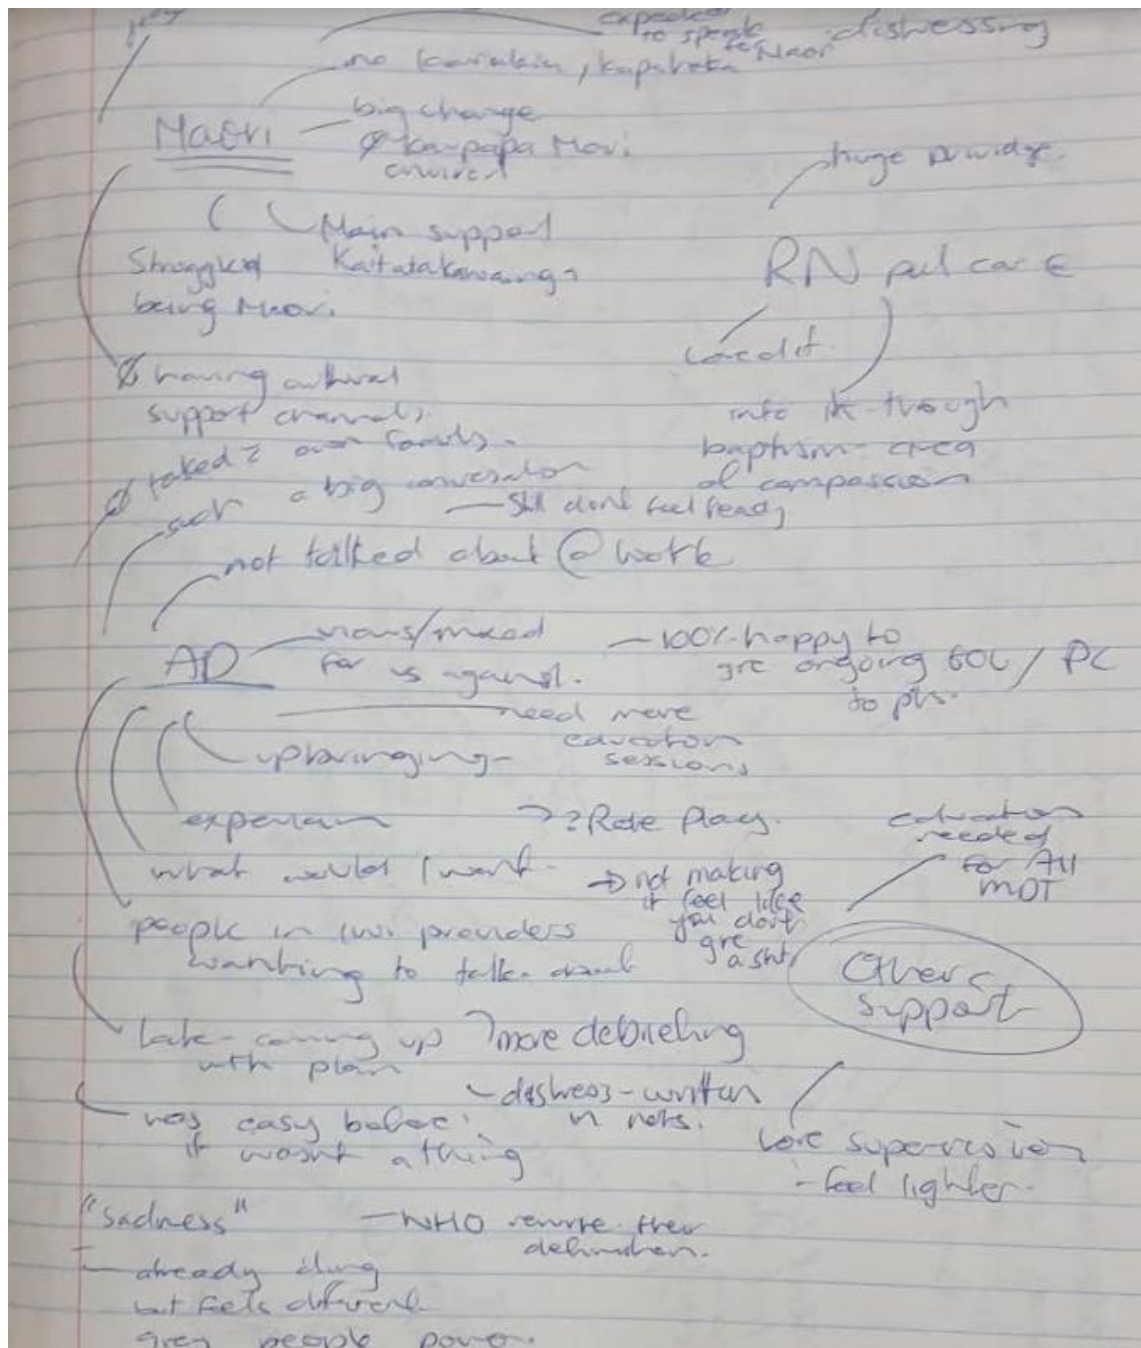 expected
to speak
te Maori
distressing
no karakia, kapahaka
Maori
big change
Ø kaupapa Maori
huge privilege.
Main support
Struggled
being Maori.
RN pal care
Loved it
Ø having cultural
support channels.
into it through
baptism - area
of compassion
Ø talked own family.
such a big conversation
- Still dont feel ready
not talked about @ work
AD
views/mixed
for vs against.
- 100% happy to
give ongoing EOL / PC
to pts.
need more
education
sessions
upbringing
? Role Plays.
education
needed
for All
MDT
what would I want.
→ not making
it feel like
you dont
give
a sht
people in iwi providers
wanting to talk about
support
coming up
with plan
? more debriefing
- distress - written
in nots.
was easy before:
it wasnt a thing
Love supervision
- feel lighter.
"sadness"
- WHO rewrite their
definition.
- already doing
but feels different
grey people power.